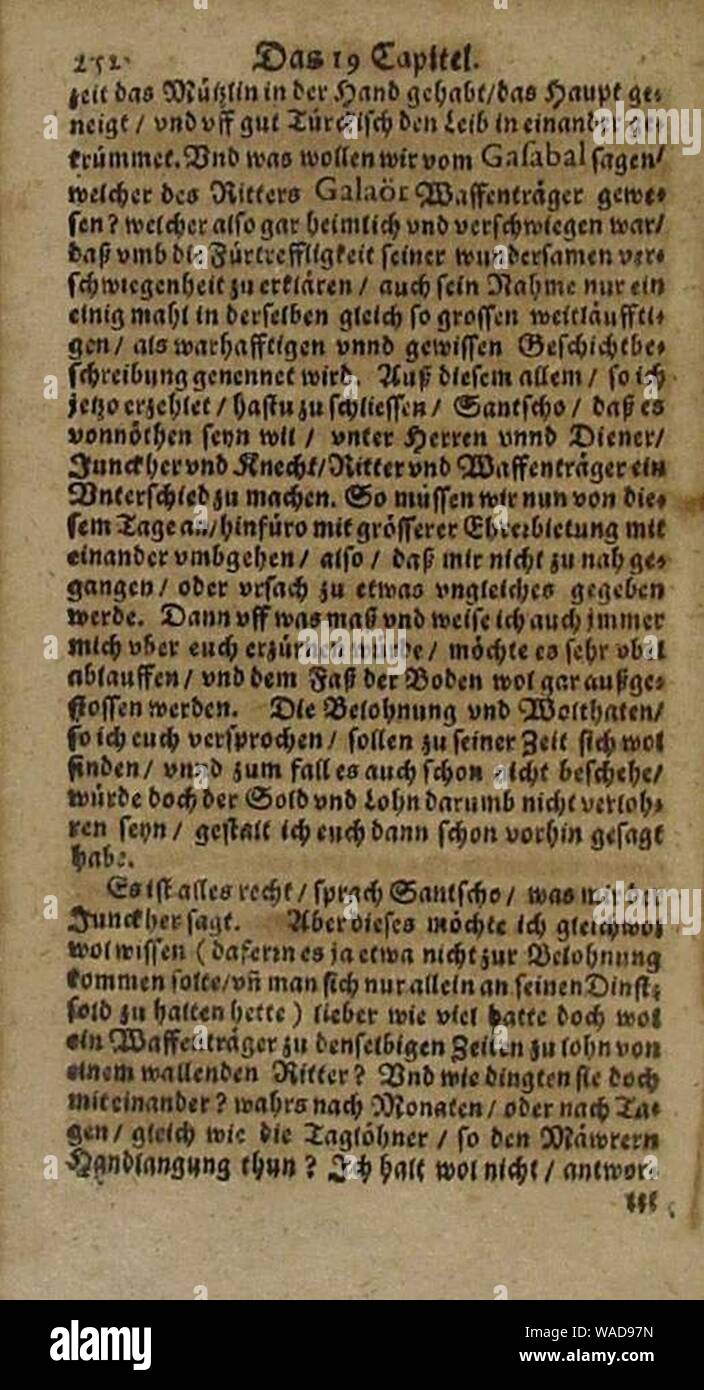 252 Das 19 Capitel.
zeit das Mützlin in der Hand gehabt/das Haupt ge⸗
neigt / vnd vff gut Türckisch den Leib in einander ge⸗
krümmet. Vnd was wollen wir vom Gasabal sagen/
welcher des Ritters Galaör Waffenträger gewe⸗
sen? welcher also gar heimlich vnd verschwiegen war/
daß vmb die Fürtreffligkeit seiner wundersamen ver⸗
schwiegenheit zu erklären / auch sein Nahme nur ein
einig mahl in derselben gleich so grossen weitläuffti⸗
gen / als warhafftigen vnnd gewissen Geschichtbe⸗
schreibung genennet wird. Auß diesem allem / so ich
jetzo erzehlet / hastu zu schliessen / Santscho / daß es
vonnöthen seyn wil / vnter Herren vnnd Diener/
Junckher vnd Knecht/Ritter vnd Waffenträger ein
Vnterschied zu machen. So müssen wir nun von die⸗
sem Tage an/hinfüro mit grösserer Ehrerbietung mit
einander vmbgehen / also / daß mir nicht zu nah ge⸗
gangen / oder vrsach zu etwas vngleiches gegeben
werde. Dann vff was maß vnd weise ich auch jmmer
mich vber euch erzürnen würde / möchte es sehr vbel
ablauffen / vnd dem Faß der Boden wol gar außge⸗
stossen werden. Die Belohnung vnd Wolthaten/
so ich euch versprochen / sollen zu seiner Zeit sich wol
finden / vnnd zum fall es auch schon nicht beschehe/
würde doch der Sold vnd Lohn darumb nicht verloh⸗
ren seyn / gestalt ich euch dann schon vorhin gesagt
habe.
Es ist alles recht / sprach Santscho / was mir der
Junckher sagt. Aber dieses möchte ich gleichwol
wol wissen ( dafern es ja etwa nicht zur Belohnung
kommen solte/vñ man sich nur allein an seinen Dinst⸗
sold zu halten hette ) lieber wie viel hatte doch wol
ein Waffenträger zu denselbigen Zeiten zu lohn von
einem wallenden Ritter? Vnd wie dingten sie doch
mit einander? wahrs nach Monaten / oder nach Ta⸗
gen / gleich wie die Taglöhner / so den Mäwrern
Handlangung thun? Ich halt wol nicht / antwor⸗
alamy
Image ID: WAD97N
www.alamy.com